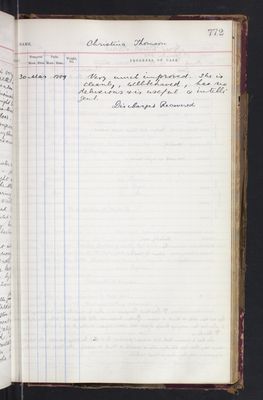 772
NAME, Christina Thomson
PROGRESS OF CASE
30 Mar 1909 Very much improved. She is
cleanly, well behaved, has no
delusions & is useful & intelli-
gent.
Discharged Recovered